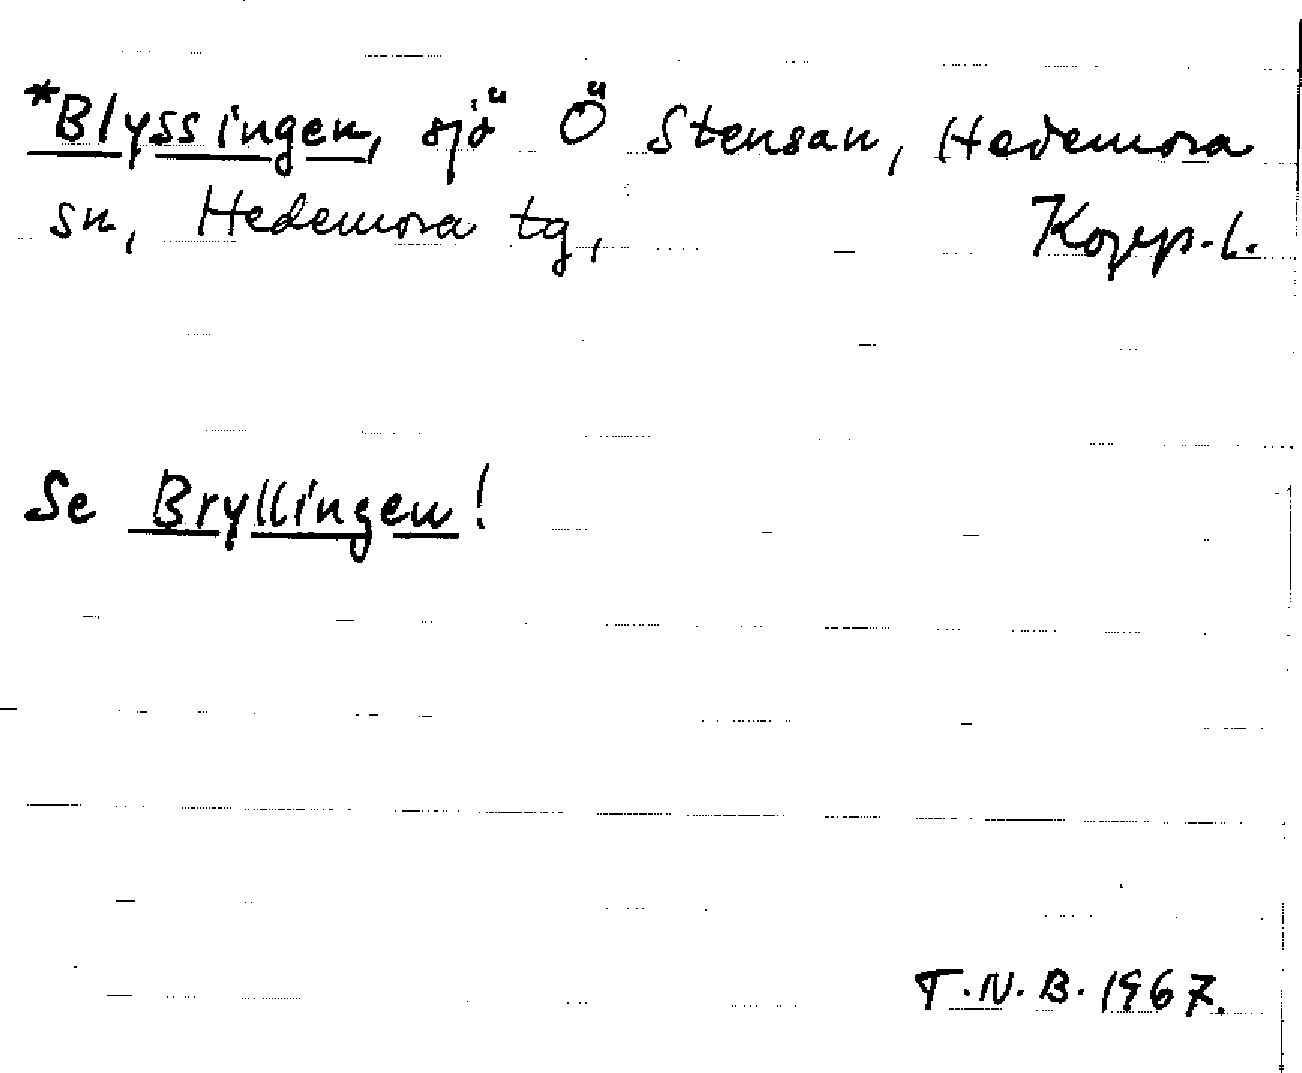 *Blyssingen, sjö Ö Stensan, Hedemora
sn, Hedemora tg, Kopp.l.
Se Bryllingen!
T.N.B. 1967.